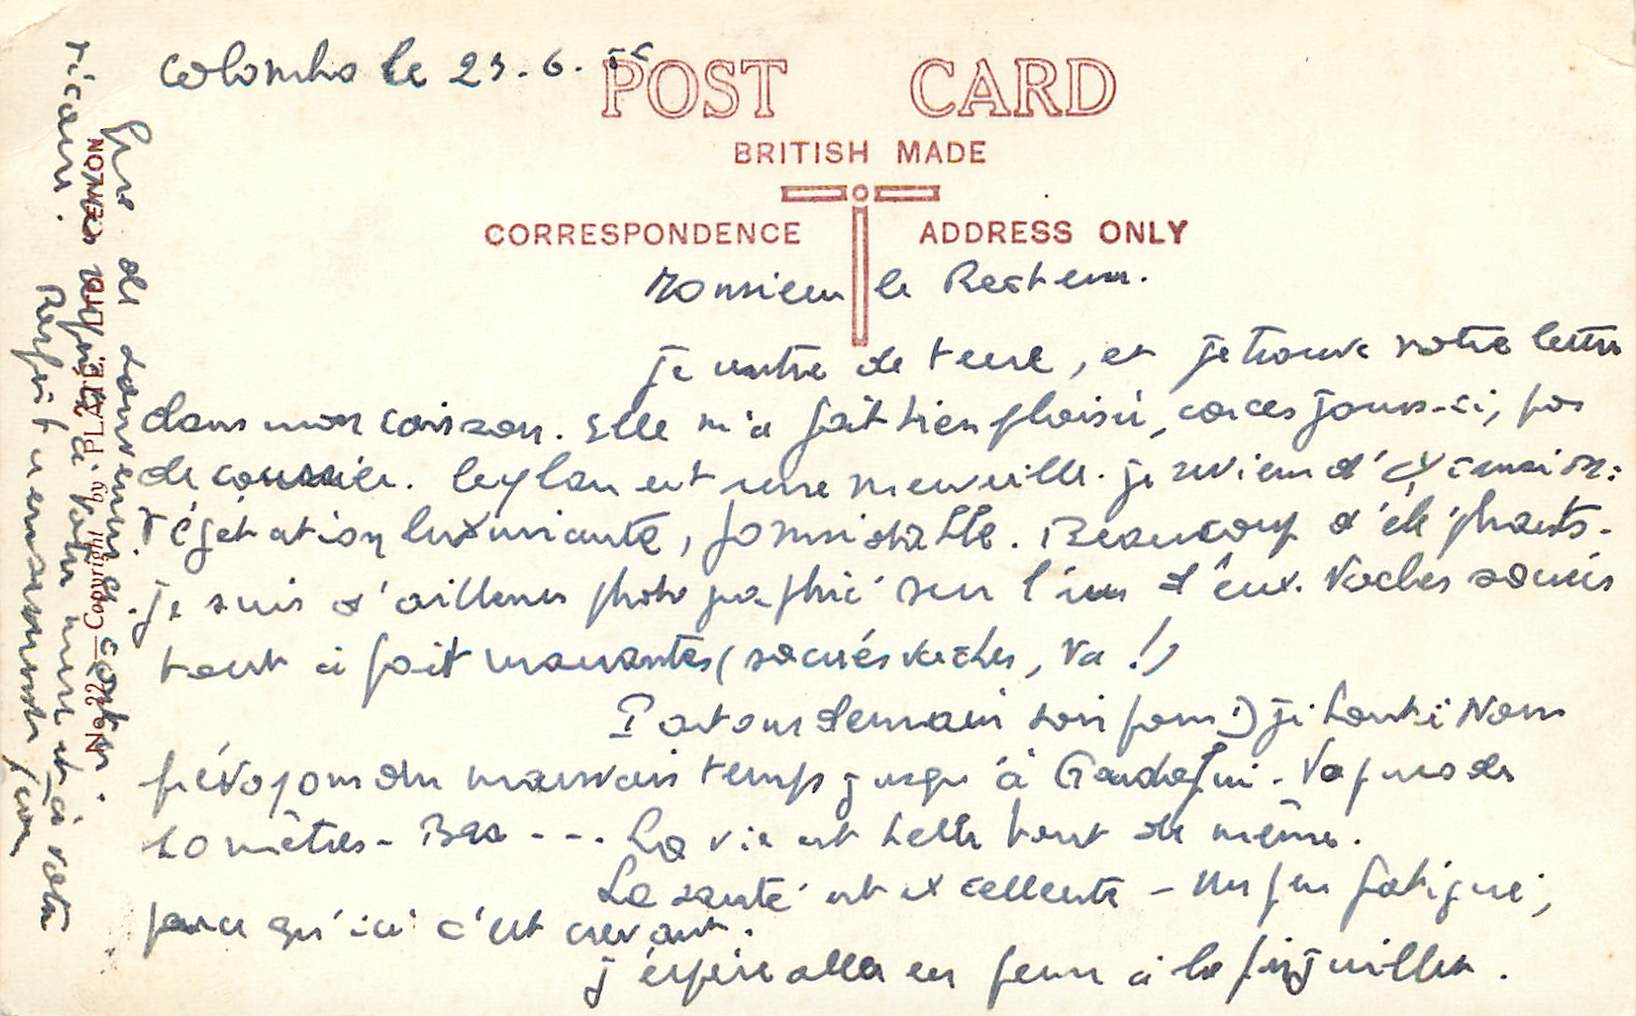 Colombo le 23.6.
POST CARD
BRITISH MADE
CORRESPONDENCE ADDRESS ONLY
Monsieur le Recteur.
je rentre de terre, et je trouve votre lettre
dans mon caisson. Elle m'a fait bien plaisir, car ces jours-ci, pas
de courrier. Ceylan est une merveille. je reviens d'excursion:
végétation luxuriante, formidable. Beaucoup d'éléphants.
je suis d'ailleurs photographié sur l'un d'eux. Vaches sacrées
tout à fait marrantes (sacrées vaches, va !)
Partons demain soir pour Djibouti Nous
prévoyons du mauvais temps jusqu'à Gardafui. Vagues de
10 mètres - Bas --- La vie est belle tout de même.
La santé est excellente - Un peu fatigué,
parce qu'ici c'est crevant.
j'espère aller en perm à la fin juillet.
Plus de souvenirs et conter.
Bonnes à votre mère et à votre
vicaire.
Respectueusement
No. 22.—Copyright by PLATÉ LTD., CEYLON